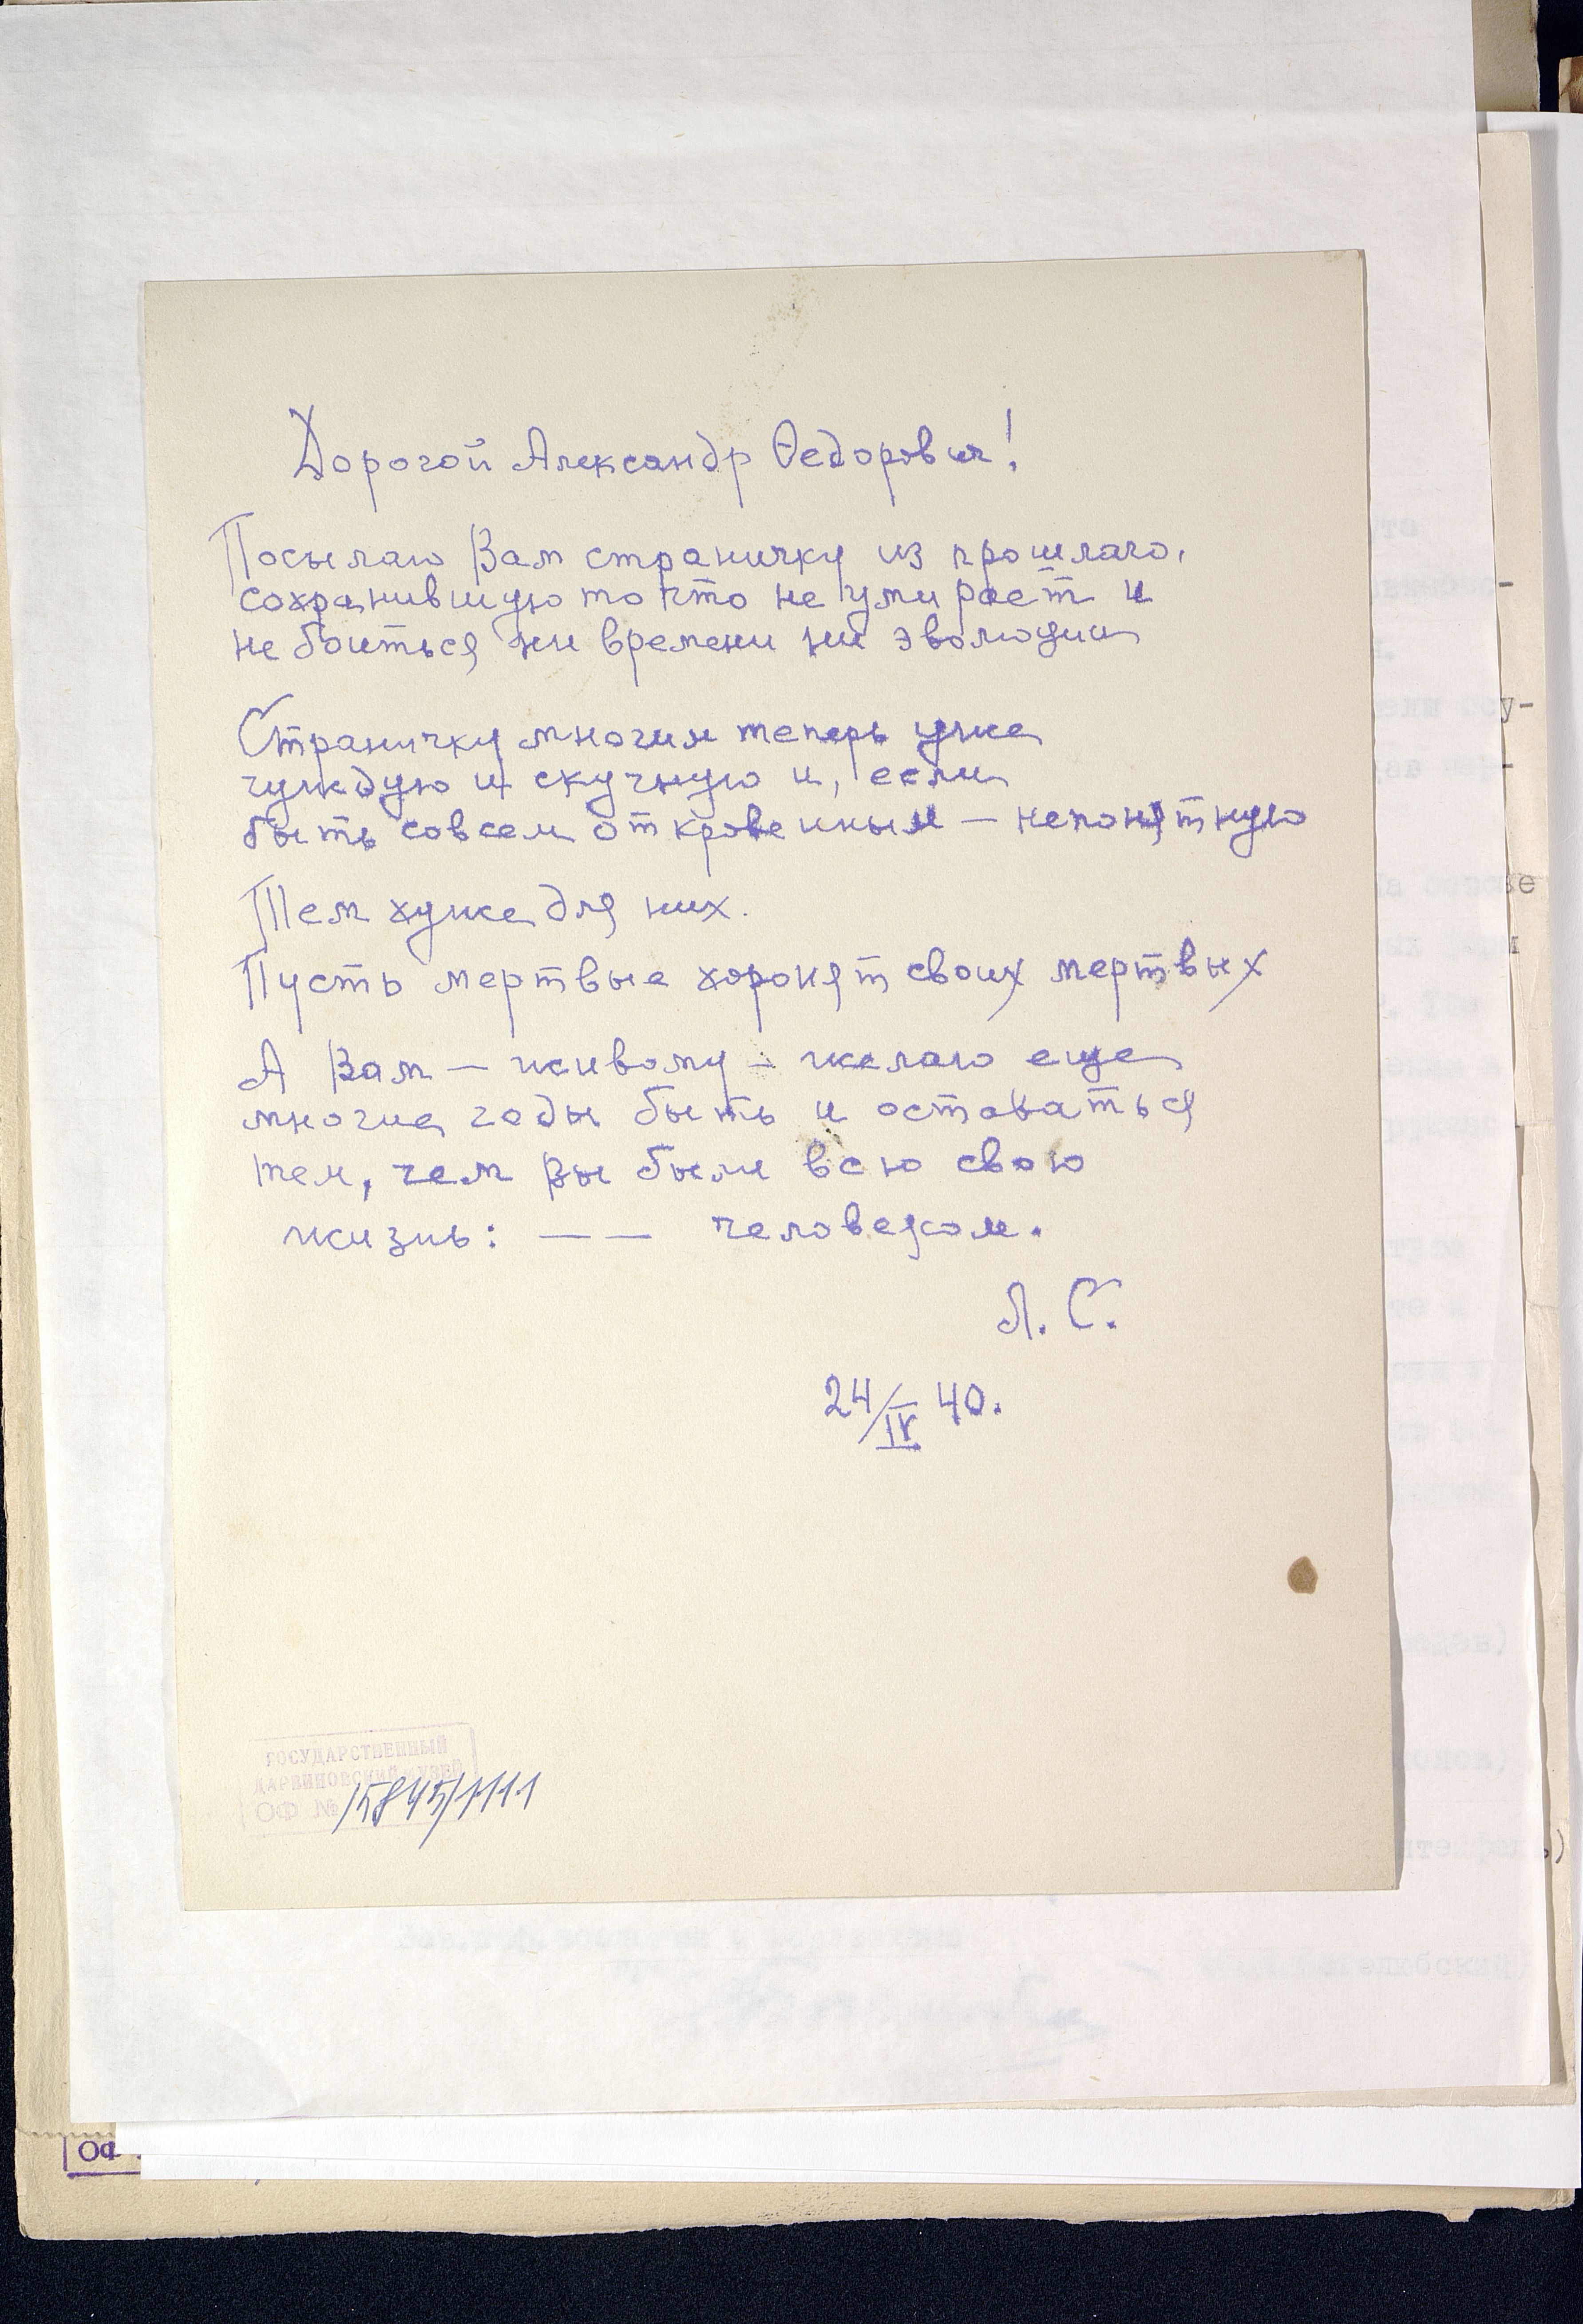 Дорогой Александр Федорович!
Посылаю Вам страничку из прошлаго,
сохранившую то что не умирает и
не боиться ни времени ни эволюции
Страничку многим теперь уже
чуждую и скучную и, если
быть совсем откровенным — непонятную
Тем хуже для них.
Пусть мертвые хоронят своих мертвых
А Вам — живому — желаю еще
многие годы быть и оставаться
тем, чем Вы были всю свою
жизнь: — — человеком.
Л. С.
24/IV 40.
ГОСУДАРСТВЕННЫЙ
ДАРВИНОВСКИЙ МУЗЕЙ
ОФ № 15845/1111
ОФ